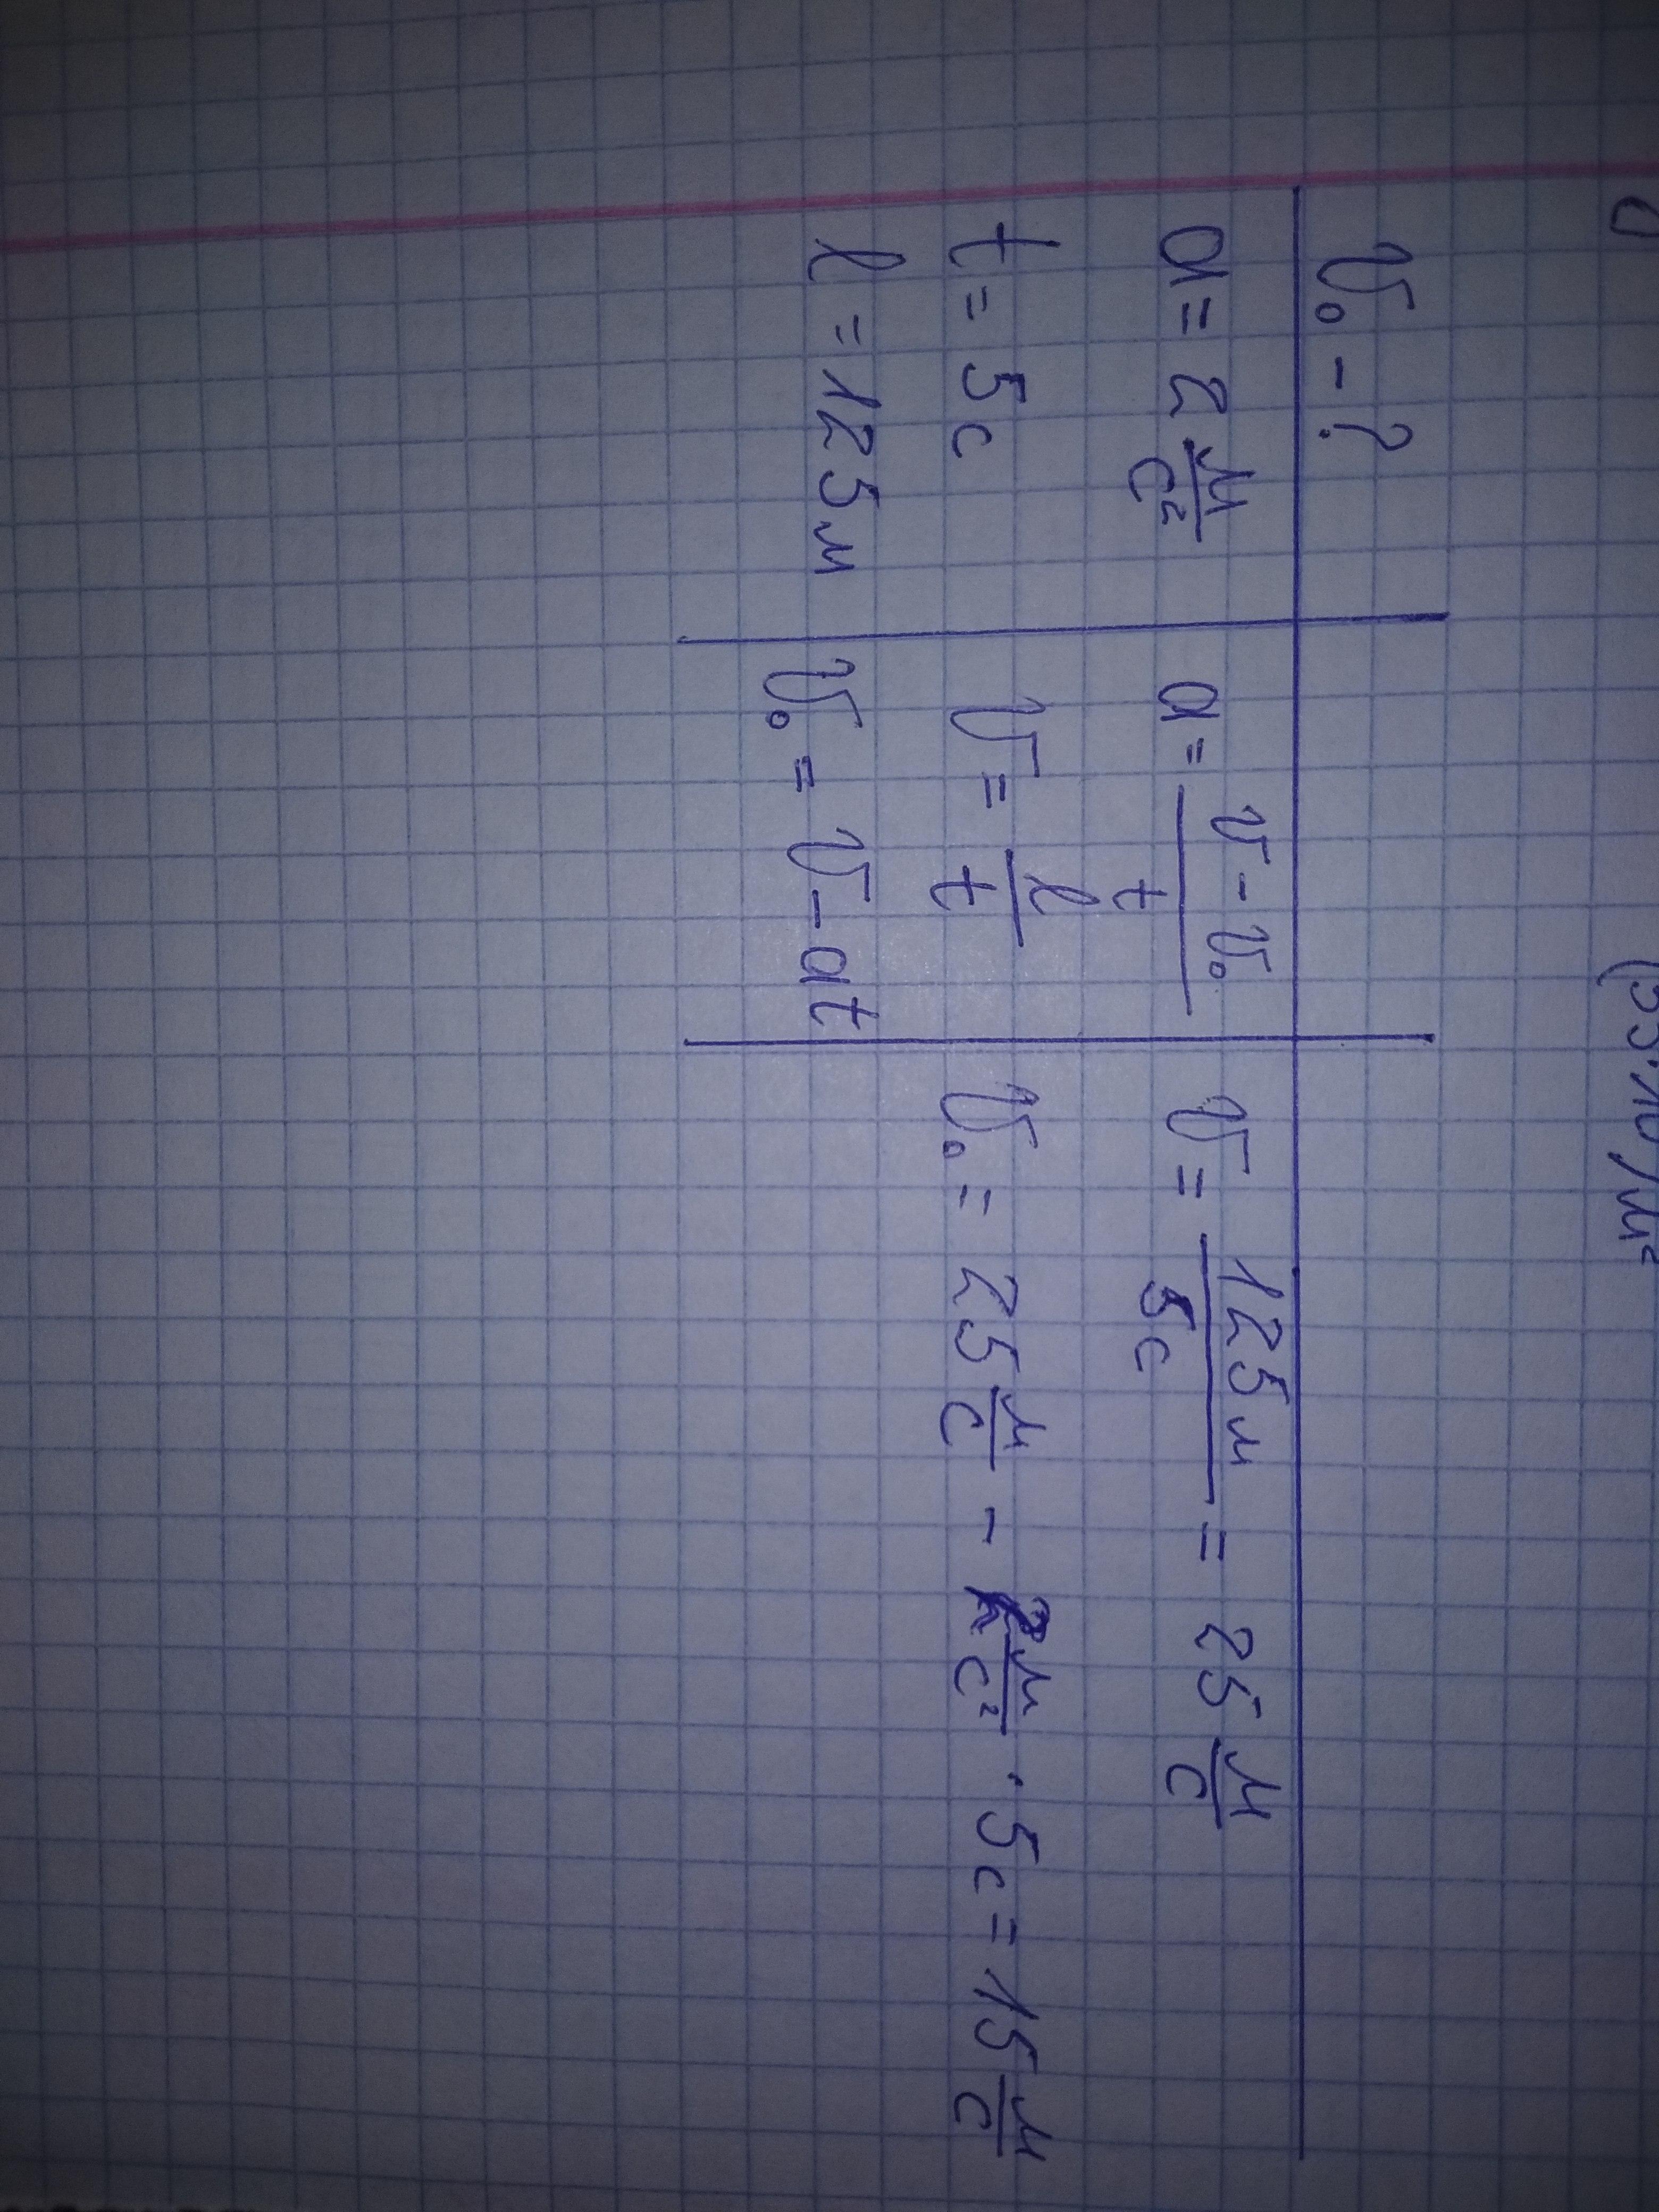 (53·10)м²
v₀ - ?
a = 2 м/с²
t = 5 с
l = 125 м
a = (v - v₀)/t
v = l/t
v₀ = v - at
v = 125 м/5 с = 25 м/с
v₀ = 25 м/с - 2 м/с² · 5 с = 15 м/с